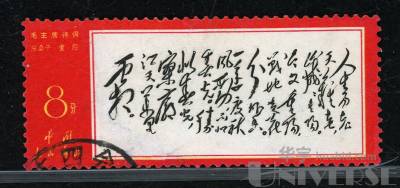 毛主席诗词
采桑子 重阳
8分
中国
人生易老
天难老
岁岁重阳
今又重阳
战地黄花
分外香
一年一度秋
风劲不似
春光胜
似春光
寥廓
江天万里
霜
四会
华宇
UNIVERSE